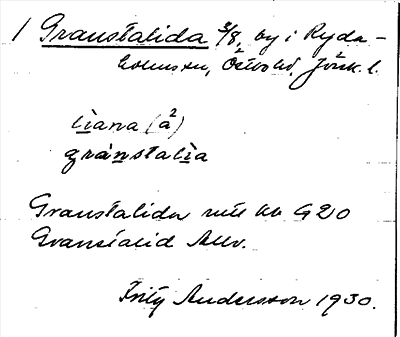 1 Granstalida 2/8, by i Ryda-
holms sn, Östbo hd, Jönk. l.
liana (à²)
gránstalia
Granstalida
Granstalid Allv.
Fritz Andersson 1930.